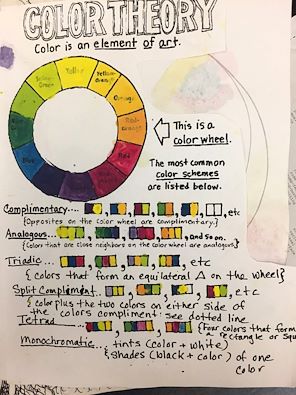 COLOR THEORY
Color is an element of art.
Yellow
Yellow-Green
Yellow-Orange
Orange
Red-Orange
Red
Blue
This is a
color wheel.
The most common
color schemes
are listed below.
Complimentary.... , etc
{Opposites on the color wheel are complimentary.}
Analogous... , and so on,
{colors that are close neighbors on the color wheel are analogous}
Triadic... , etc
{colors that form an equilateral Δ on the wheel}
Split Complement , etc
{color plus the two colors on either side of
the colors compliment: see dotted line
Tetrad {Four colors that form
a rectangle or
Monochromatic... tints (color + white)
{shades (black + color) of one
color